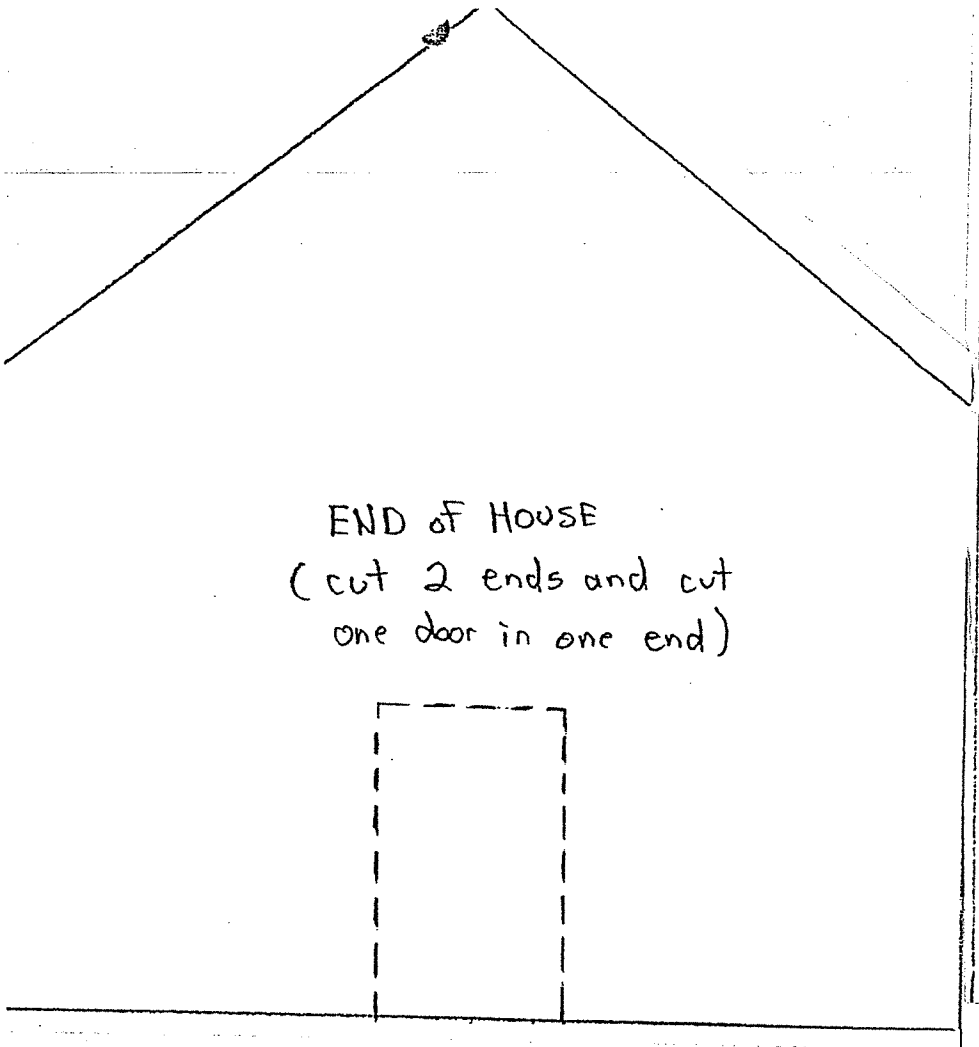 END of HOUSE
(cut 2 ends and cut
one door in one end)